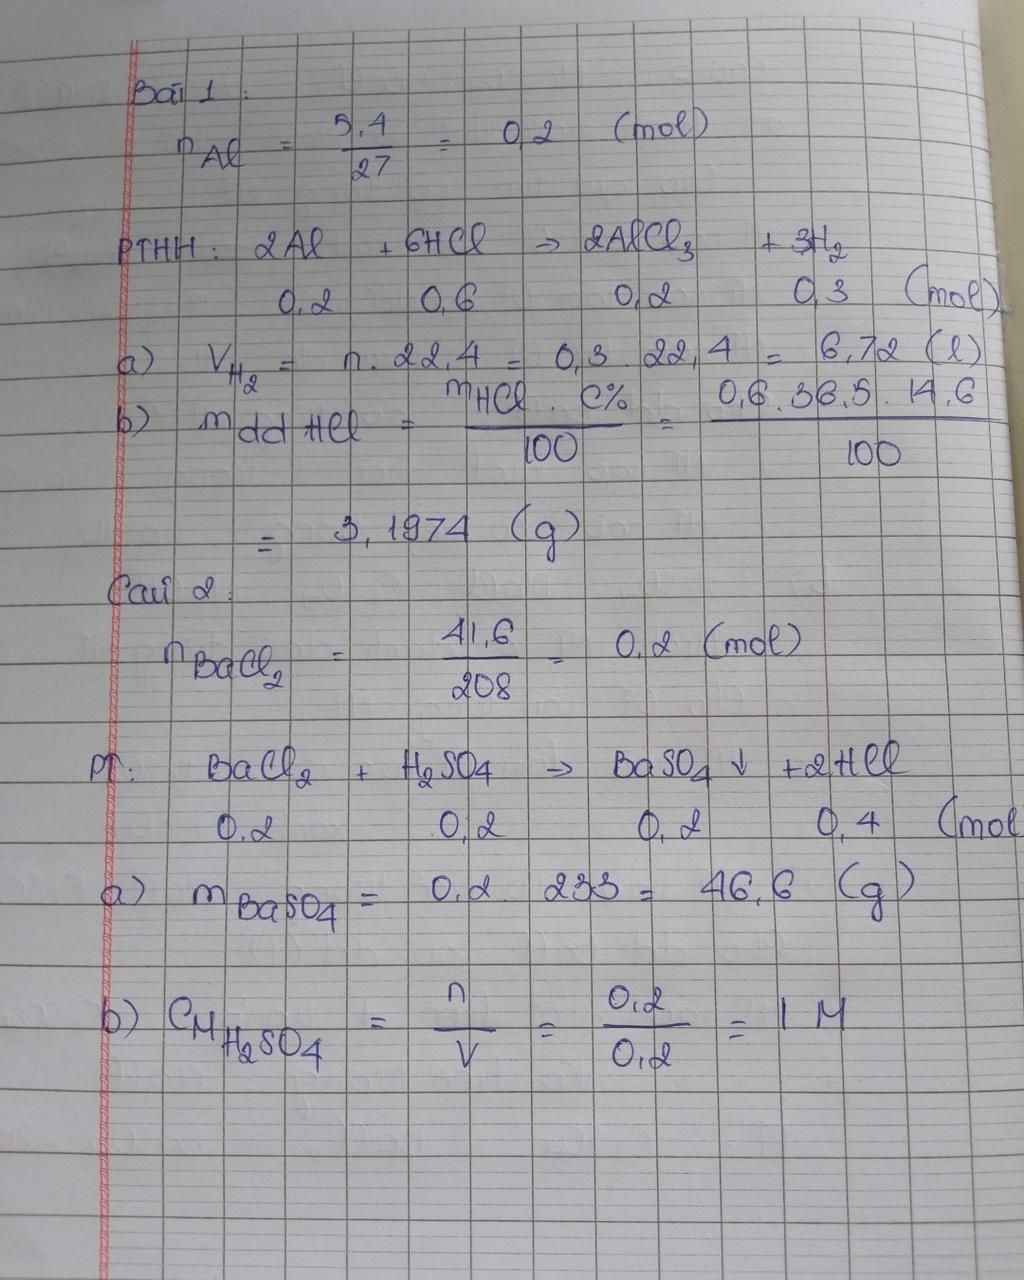 Bài 1:
nAl = 5,4/27 = 0,2 (mol)
PTHH: 2Al + 6HCl → 2AlCl₃ + 3H₂
0,2 0,6 0,2 0,3 (mol)
a) VH₂ = n. 22,4 = 0,3. 22,4 = 6,72 (l)
b) mdd HCl = mHCl . C%/100 = 0,6.36,5.14,6/100
= 3,1974 (g)
Câu 2:
nBaCl₂ = 41,6/208 = 0,2 (mol)
PT: BaCl₂ + H₂SO₄ → BaSO₄ ↓ + 2HCl
0,2 0,2 0,2 0,4 (mol
a) mBaSO₄ = 0,2 233 = 46,6 (g)
b) CM H₂SO₄ = n/V = 0,2/0,2 = 1 M